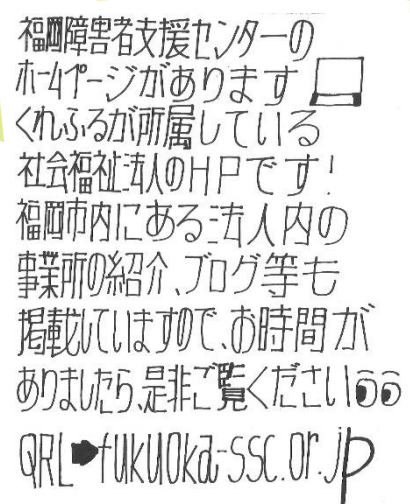 福岡障害者支援センターの
ホームページがあります
くれふるが所属している
社会福祉法人のHPです!
福岡市内にある法人内の
事業所の紹介、ブログ等も
掲載していますので、お時間が
ありましたら、是非ご覧ください
QRL➡fukuoka-ssc.or.jp